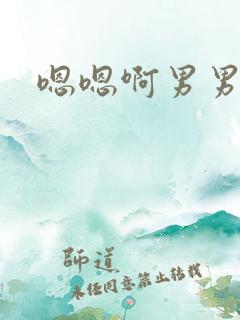 嗯嗯啊男男
師道
未经同意禁止转载